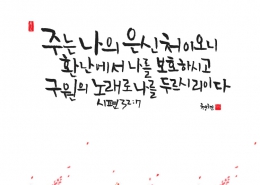 주는 나의 은신처이오니
환난에서 나를 보호하시고
구원의 노래로 나를 두르시리이다
시편 32:7